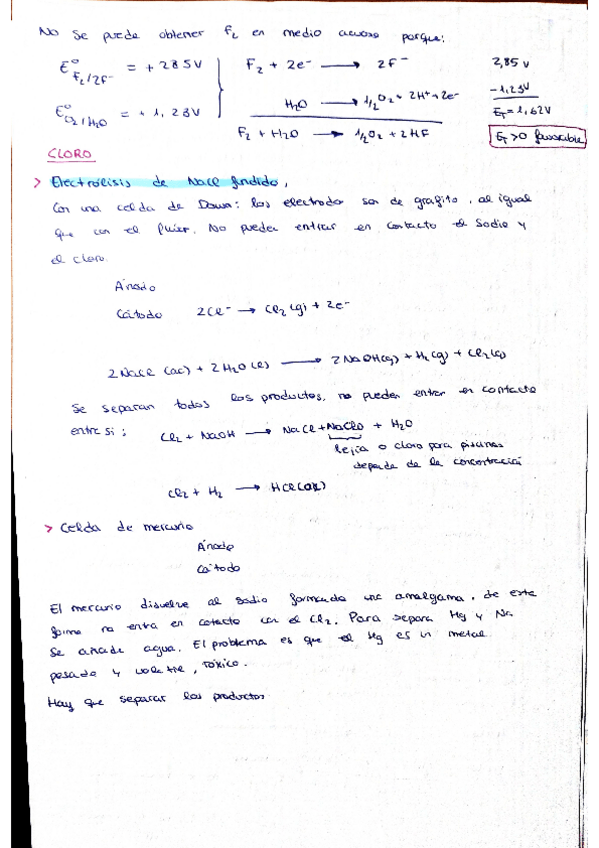 No se puede obtener F₂ en medio acuoso porque:
E°F₂/2F⁻ = +2.85V F₂ + 2e⁻ → 2F⁻ 2,85 V
E°O₂/H₂O = +1,23V H₂O → 1/2 O₂ + 2H⁺ + 2e⁻ -1,23V
ET = 1,62V
F₂ + H₂O → 1/2 O₂ + 2HF ET > 0 favorable
CLORO
> Electrólisis de NaCl fundido,
Con una celda de Down: los electrodos son de grafito, al igual
que con el flúor. No pueden entrar en contacto el sodio y
el cloro.
Ánodo
Cátodo 2Cl⁻ → Cl₂(g) + 2e⁻
2NaCl (ac) + 2H₂O(l) → 2NaOH(g) + H₂(g) + Cl₂(g)
Se separan todos los productos, no pueden entrar en contacto
entre si: Cl₂ + NaOH → NaCl + NaClO + H₂O
lejía o cloro para piscinas
depende de la concentración
Cl₂ + H₂ → HCl(ac)
> Celda de mercurio
Ánodo
Cátodo
El mercurio disuelve al sodio formando una amalgama, de esta
forma no entra en cotacto con el Cl₂. Para separa Hg y Na
se añade agua. El problema es que el Hg es un metal
pesado y volatil, tóxico.
Hay que separar los productos